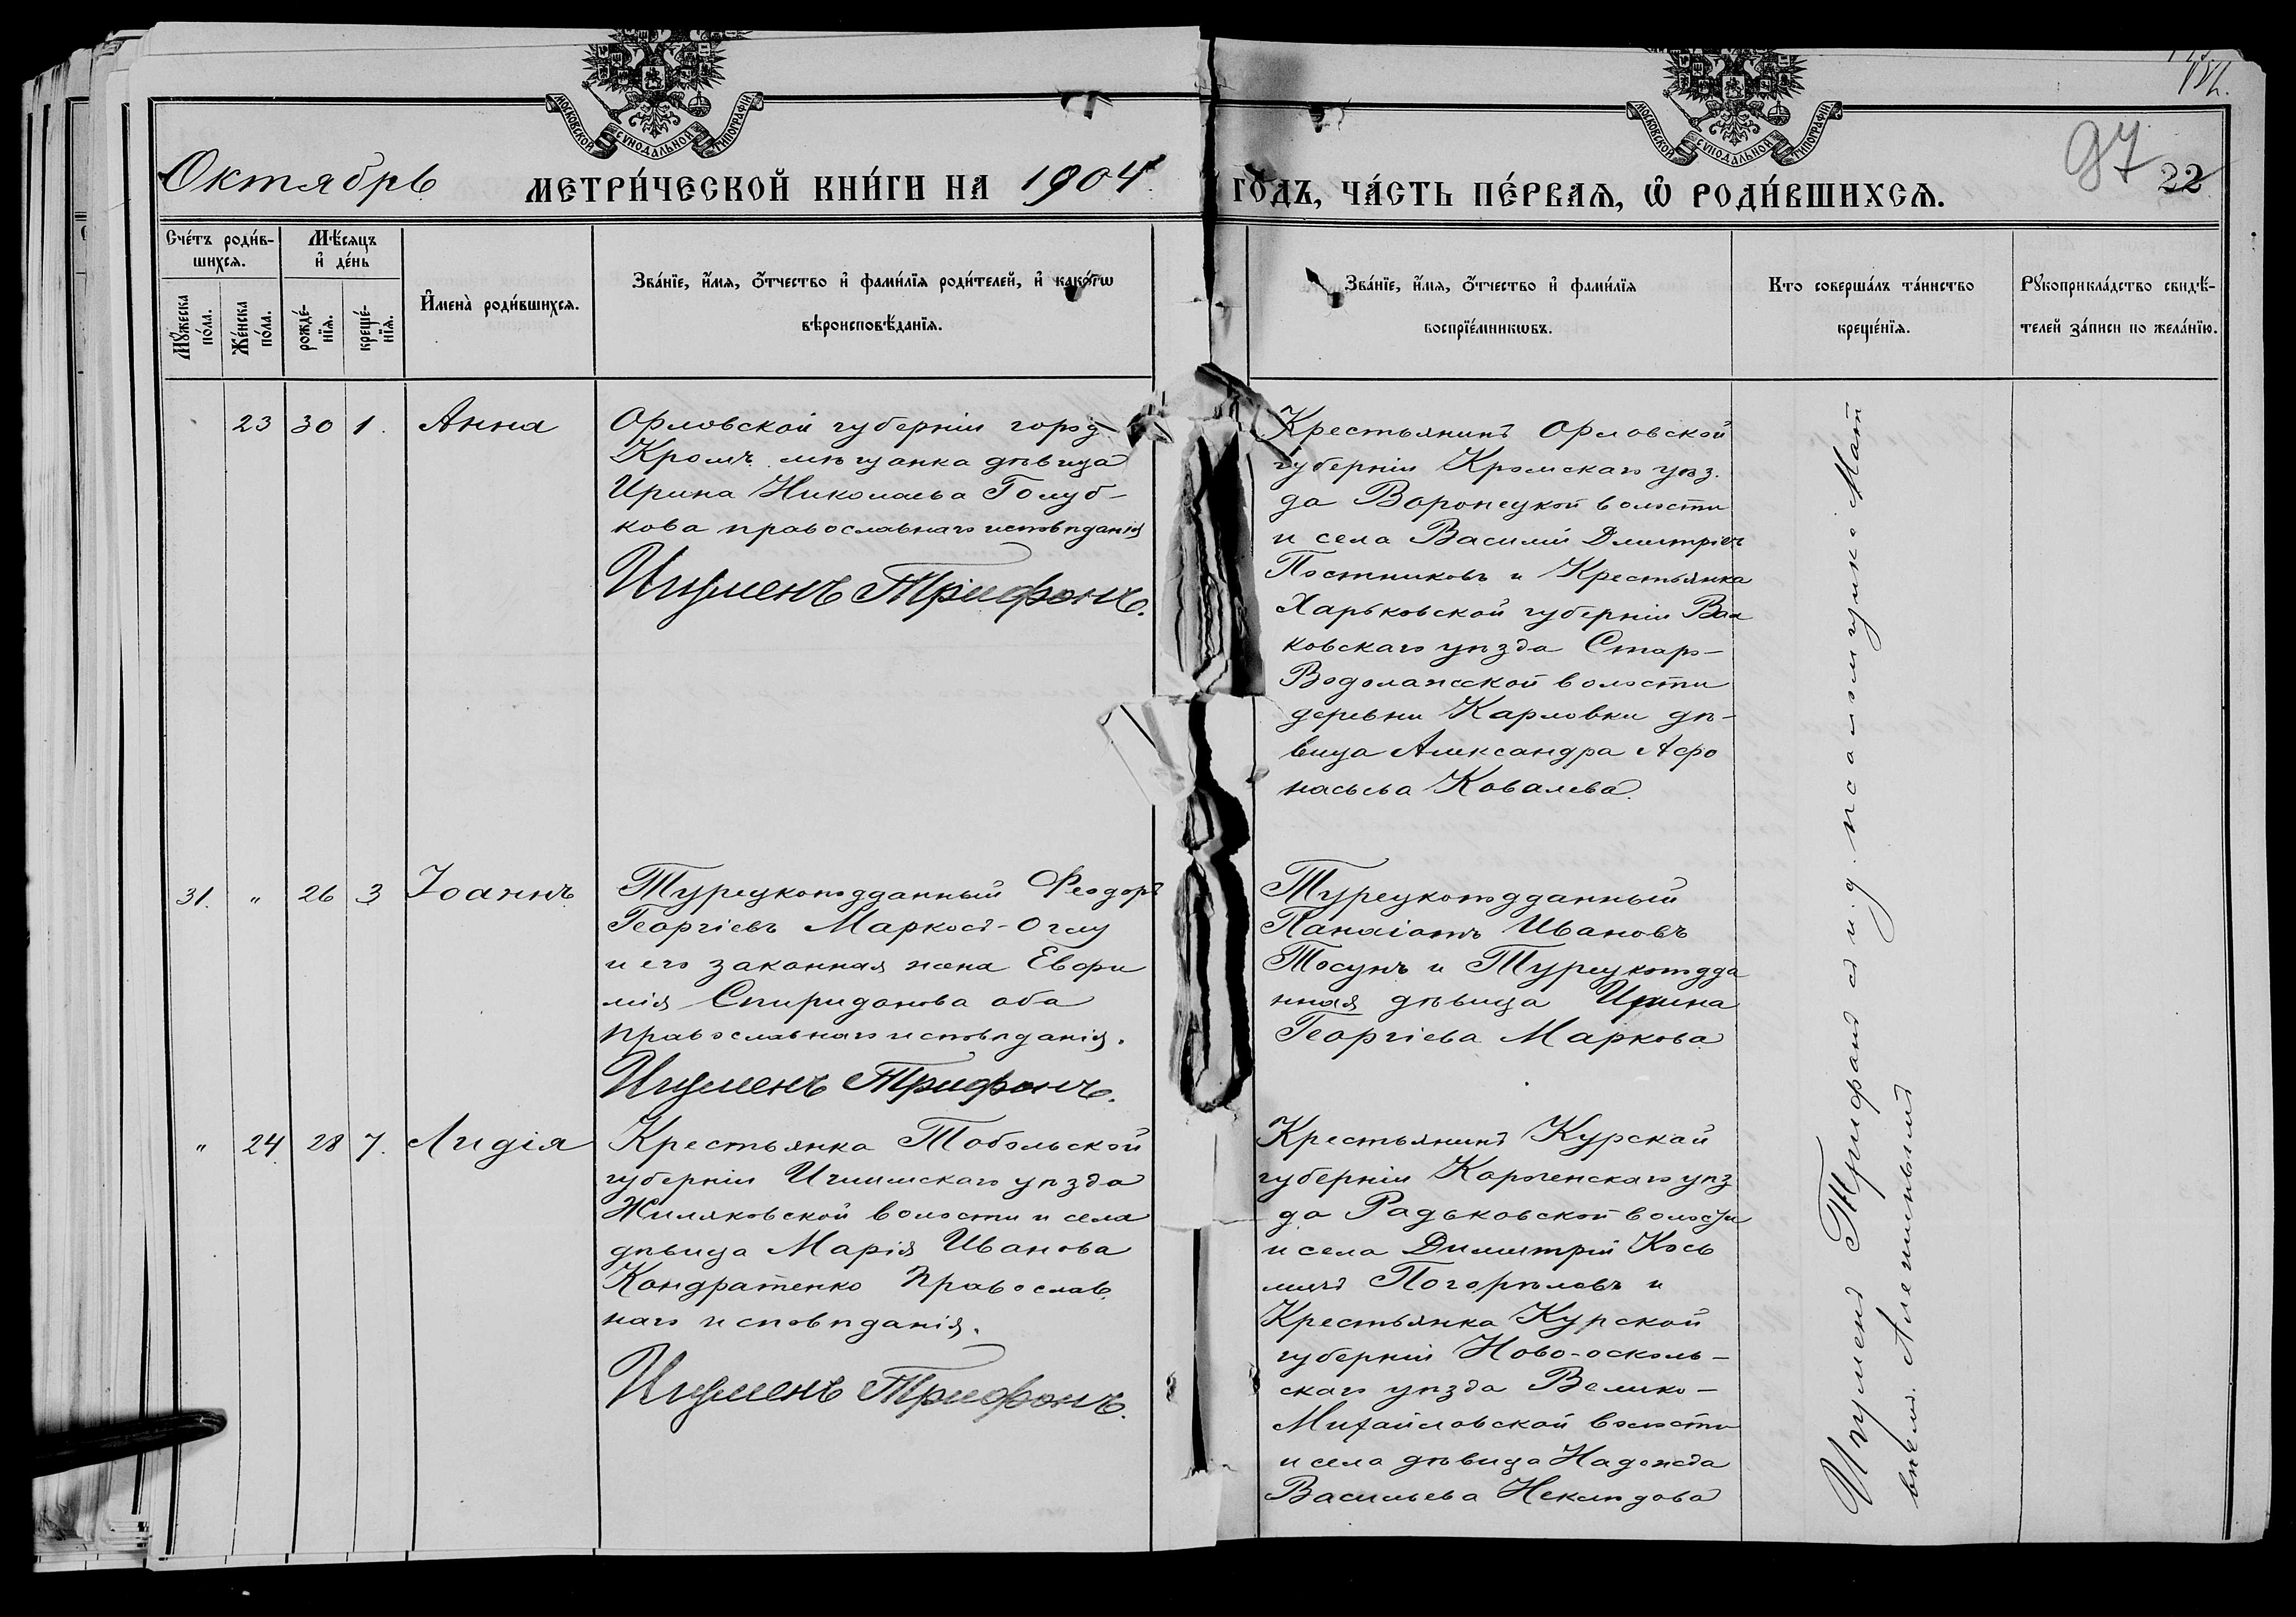 МОСКОВСКОЙ СУНОДАЛЬНОЙ ТИПОГРАФІИ
МОСКОВСКОЙ СУНОДАЛЬНОЙ ТИПОГРАФІИ
97 22
Октябрь МЕТРИ́ЧЕСКОЙ КНИ́ГИ НА 1904 ГО́ДЪ, ЧА́СТЬ ПЕ́РВАѦ, Ѡ҆ РОДИ́ВШИХСѦ.
Сче́тъ роди́в-
шихсѧ.
Мꙋ́жеска по́ла.
Же́нска по́ла.
Мѣ́сѧцъ
и҆ де́нь
рожде́-
нїѧ.
креще́-
нїѧ.
И҆мена̀ роди́вшихсѧ.
Зва́нїе, и҆́мѧ, ѻ҆́тчество и҆ фами́лїѧ роди́телей, и҆ како́гѡ
вѣроисповѣ́данїѧ.
Зва́нїе, и҆́мѧ, ѻ҆́тчество и҆ фами́лїѧ
воспрїе́мникѡвъ.
Кто соверша́лъ та́инство
креще́нїѧ.
Рꙋкоприкла́дство свидѣ́-
телей за́писи по жела́нїю.
23 30 1. Анна
Орловской губерніи город.
Кромъ мѣщанка дѣвица
Ирина Николаева Голуб-
кова православнаго исповѣданія
Игуменъ Трифонъ.
Крестьянинъ Орловской
губерніи Кромскаго уѣз.
да Воронецкой волости
и села Василій Дмитріевъ
Постниковъ и Крестьянка
Харьковской губерніи Вал
ковскаго уѣзда Старо-
Водолажской волости
деревни Карловки дѣ-
вица Александра Афо
насьева Ковалева.
31. " 26 3 Іоаннъ
Турецкоподданный Феодоръ
Георгіевъ Маркос-Оглу
и его законная жена Евфи
мія Спиридонова оба
православнаго исповѣданія.
Игуменъ Трифонъ.
Турецкоподданный
Панаіотъ Ивановъ
Тосунъ и Турецкоподда
нная дѣвица Ирина
Георгіева Маркова
" 24. 28 7. Лидія
Крестьянка Тобольской
губерніи Ишимскаго уѣзда
Жиляковской волости и села
дѣвица Марія Иванова
Кондратенко Православ
наго исповѣданія.
Игуменъ Трифонъ.
Крестьянинъ Курской
губерніи Короченскаго уѣз
да Радьковской волости
и села Димитрій Кось
минъ Погорѣловъ и
Крестьянка Курской
губерніи Ново-осколь-
скаго уѣзда Велико-
Михайловской волости
и села дѣвица Надежда
Васильева Неклюдова
Игуменъ Трифонъ с и. д. псаломщика Мат
вѣем.